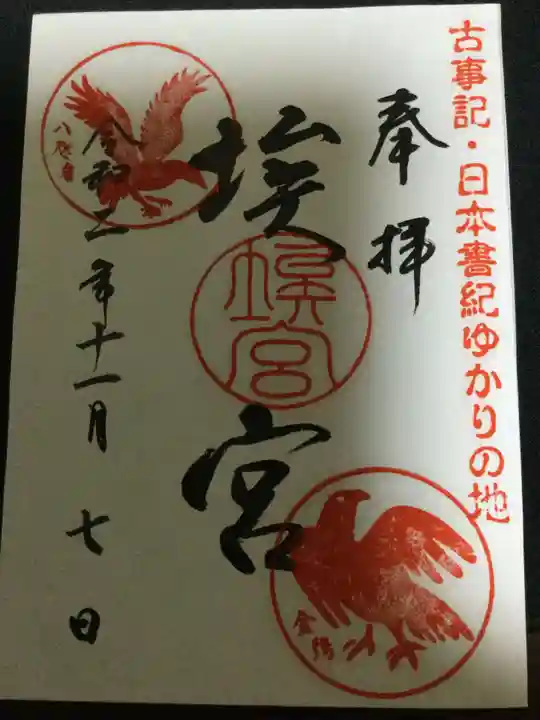 古事記・日本書紀ゆかりの地
奉拝
埃宮
埃宮
令和二年十一月七日
八咫烏
金鵄